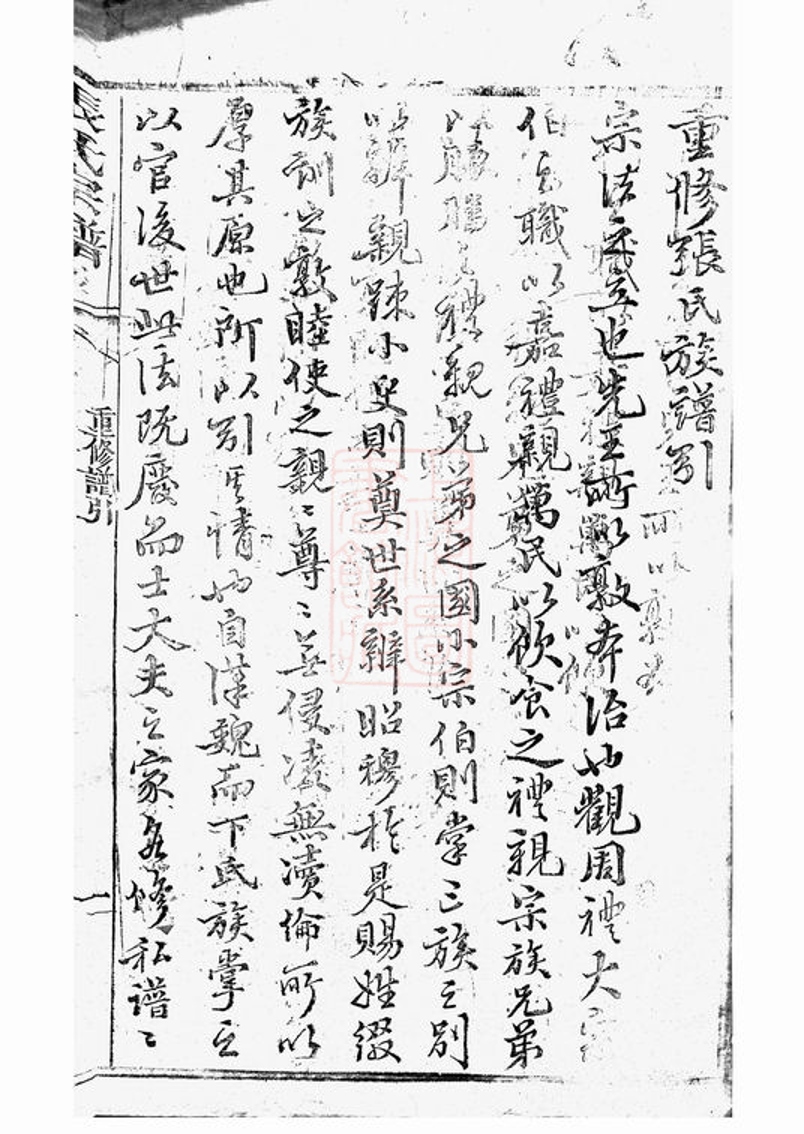 重修張氏族譜引
宗法之立也先王所以敦本治也觀周禮大宗
伯之職以嘉禮親萬民以飲食之禮親宗族兄弟
以脤膰之禮親兄弟之國小宗伯則掌三族之別
以辨親疎小史則奠世系辨昭穆於是賜姓綴
族訓之敦睦使之親〻尊〻無侵凌無瀆倫所以
厚其原也所以引其情也自漢魏而下氏族掌之
以官後世此法既廢而士大夫之家各修私譜〻
張氏宗譜
重修譜引
一